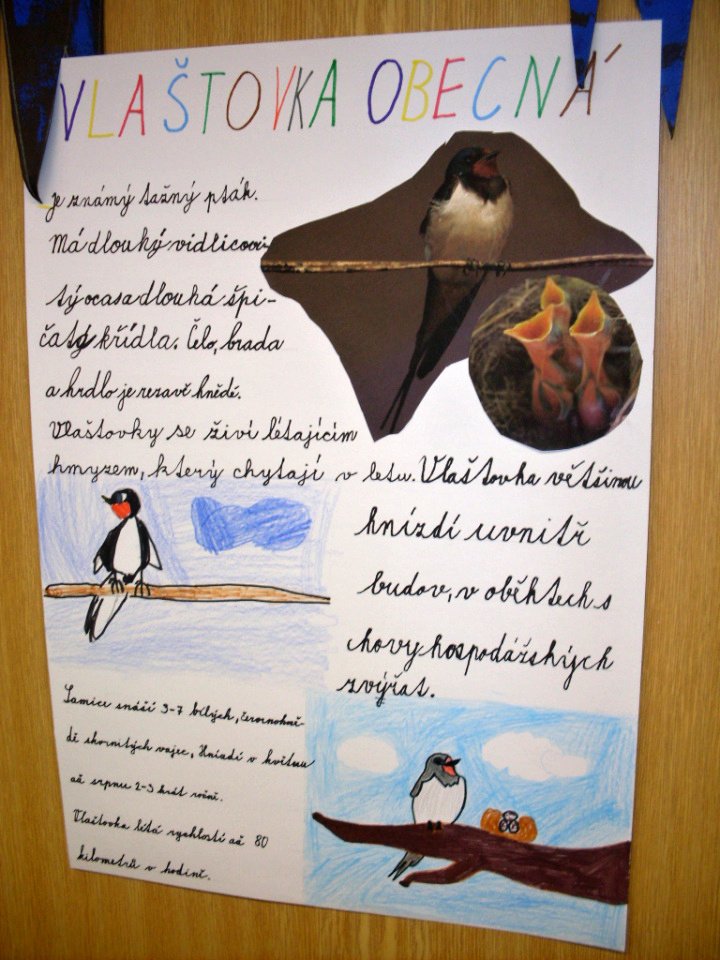 VLAŠTOVKA OBECNÁ
je známý tažný pták.
Má dlouhý vidlicovi-
tý ocas a dlouhá špi-
čatá křídla. Čelo, brada
a hrdlo je rezavě hnědé.
Vlaštovky se živí létajícím
hmyzem, který chytají v letu. Vlaštovka většinou
hnízdí uvnitř
budov, v oběktech s
chovy hospodářských
zvýřat.
Samice snáší 3-7 bílých, červenohně-
dě skvrnitých vajec, Hnízdí v květnu
až srpnu 2-3 krát ročně.
Vlaštovka létá rychlostí až 80
kilometrů v hodině.